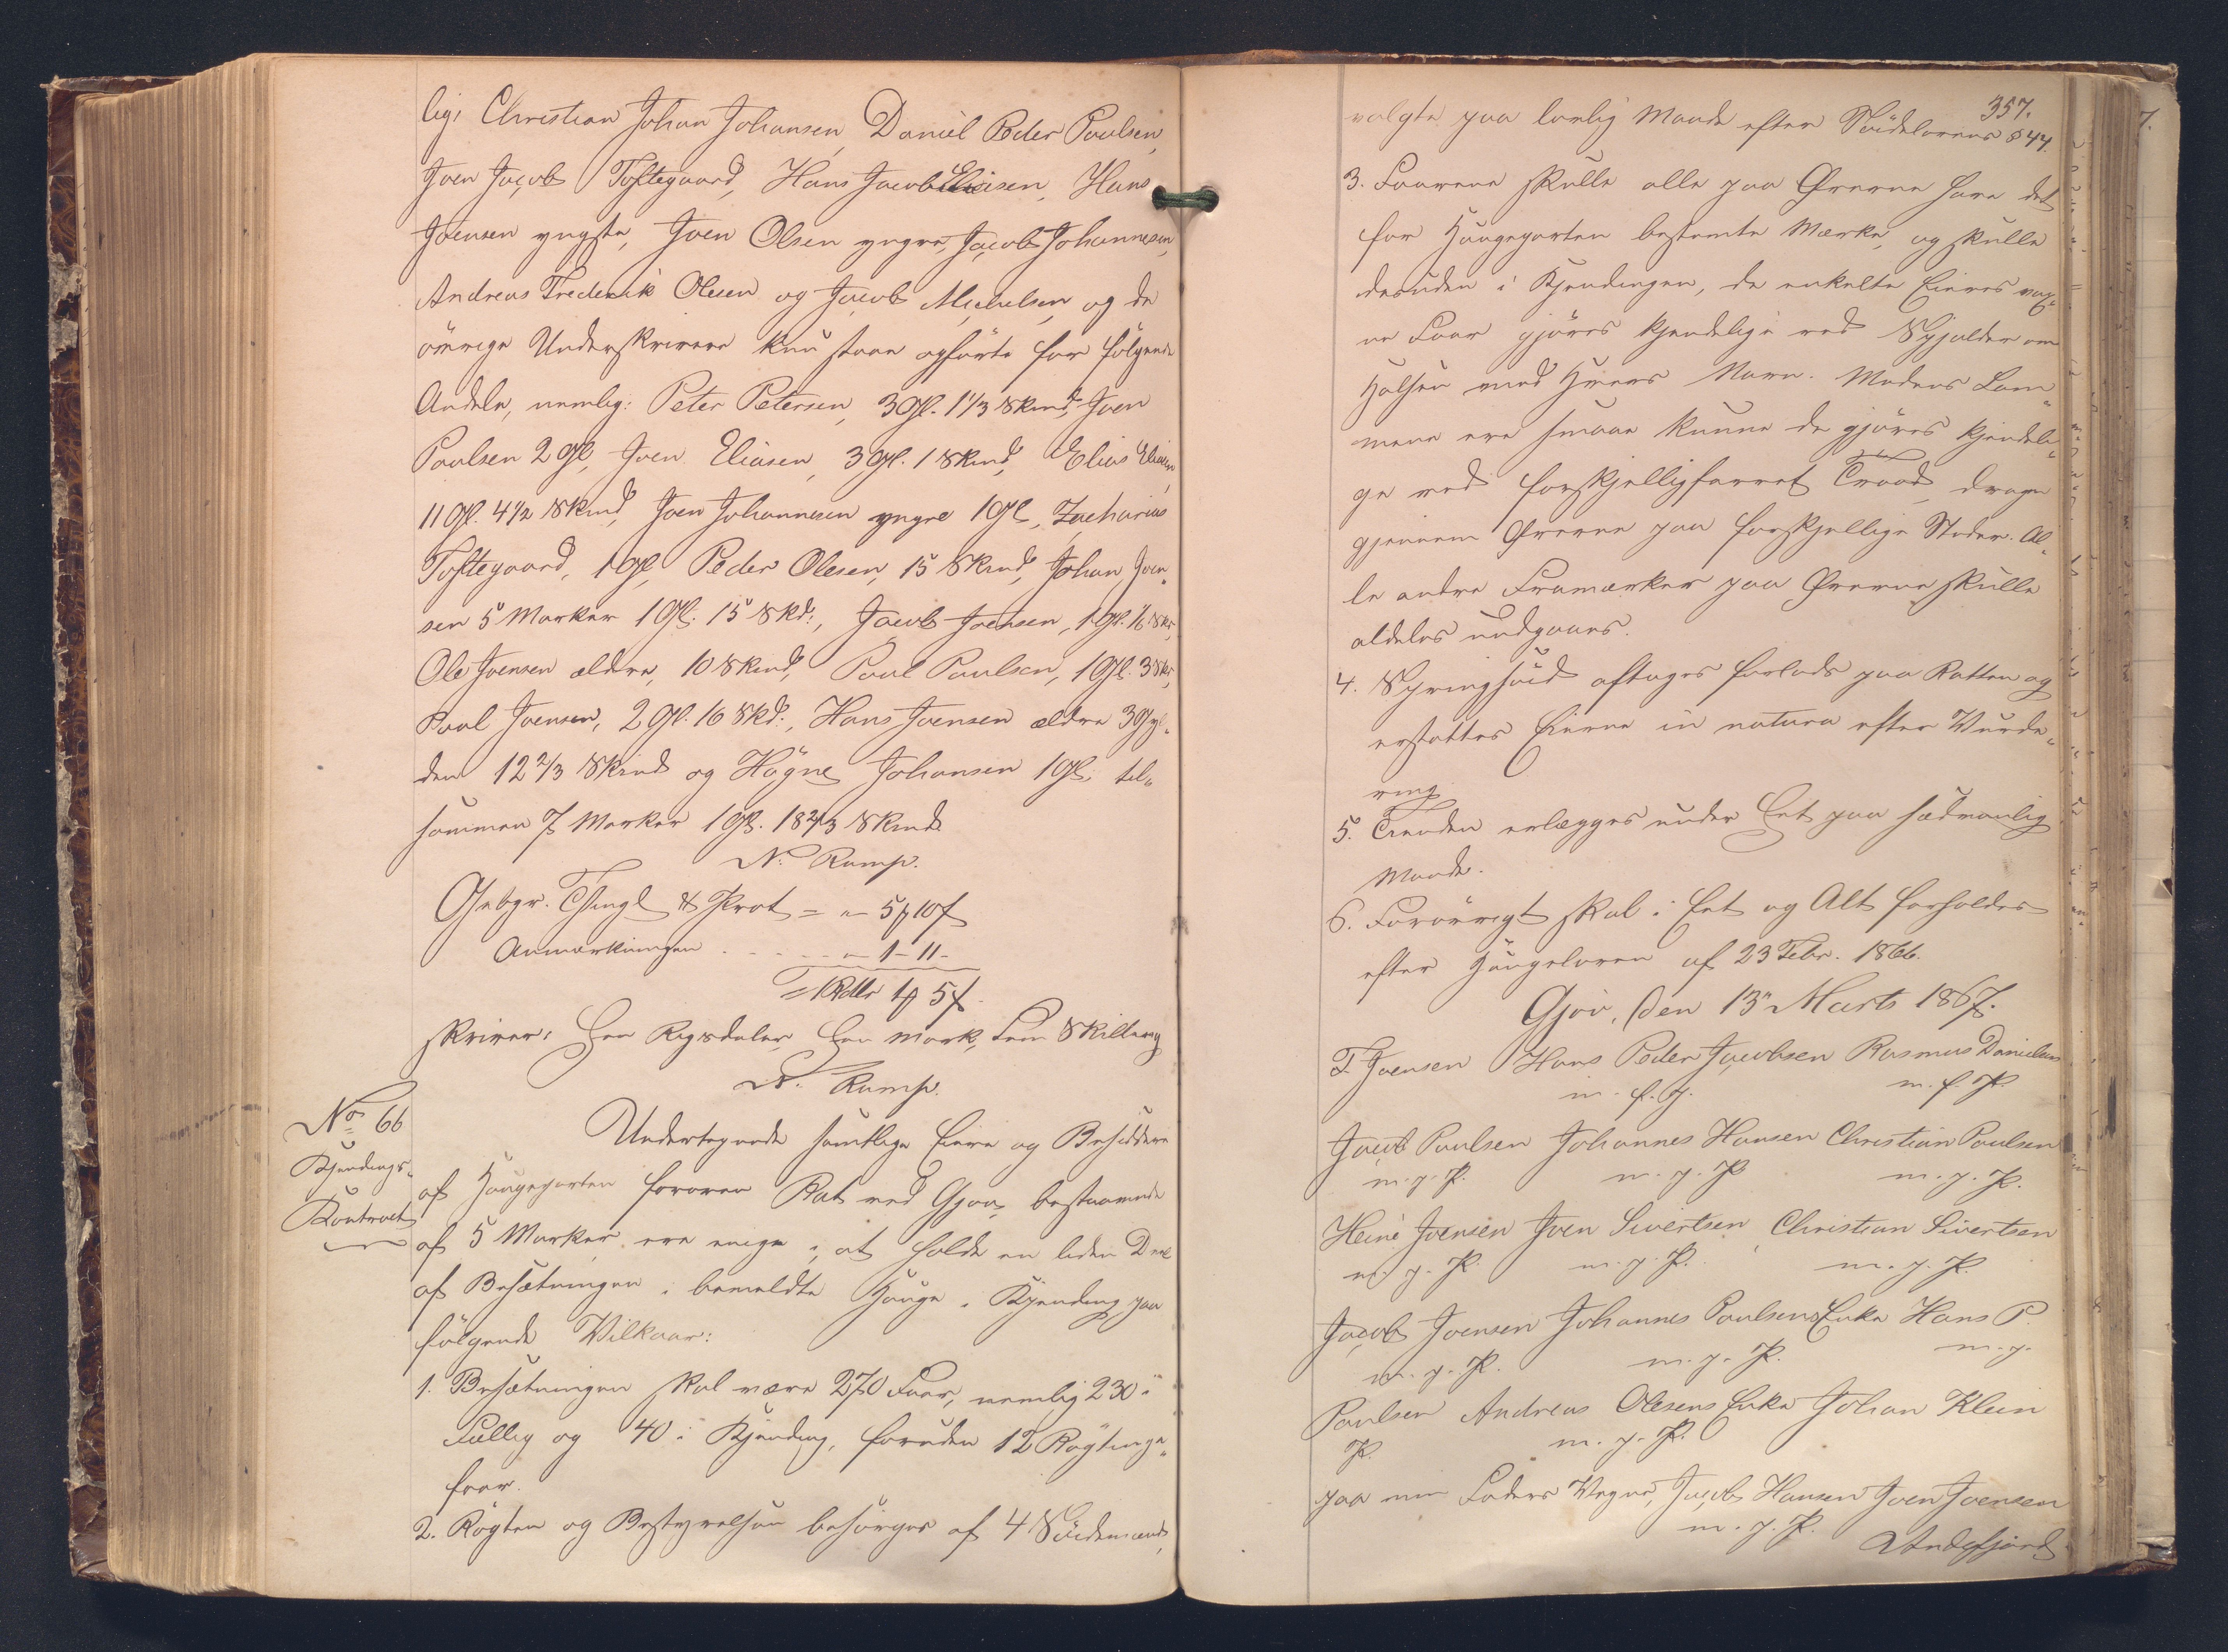 lig: Christian Johan Johansen, Daniel Peder Poulsen,
Joen Jacob Toftegaard, Hans Jacob Eliasen, Hans
Joensen yngste, Joen Olsen yngre, Jacob Johannesen,
Andreas Frederik Olesen og Jacob Michelsen, og de
övrige Underskrivere kun staae opförte for fölgende
Andele, nemlig: Peter Petersen, 3 Gl. 1 1/3 Skind, Joen
Poulsen 2 Gl, Joen Eliasen, 3 Gl. 1 Skind, Elias Eliasen
11 Gl. 4 1/2 Skind, Joen Johannesen yngre 1 Gl, Zacharias
Toftegaard, 1 Gl, Peder Olesen, 15 Skind, Johan Joen-
sen 5 Marker 1 Gl. 15 Skd:, Jacob Joensen, 1 Gl. 16 Sk,
Ole Joensen ældre, 10 Skind, Poul Poulsen, 1 Gl. 3 Sk,
Poul Joensen, 2 Gl. 16 Skd:, Hans Joensen ældre 3 Gyl-
den 12 2/3 Skind og Högne Johansen 1 Gl: til-
sammen 7 Marker 1 Gl. 18 2/3 Skind.
N. Rump.
Gebyr. Thingl & Prot = " 5 ₰ 10 ß
Anmærkningen . . . . " 1 - 11 -
= 1 Rdlr 1 ₰ 5 ß.
skriver: Een Rigsdaler, Een Mark, Fem Skilling
N. Rump.
No 66
Kjendings-
Kontract
Undertegnede samtlige Eiere og Besiddere
af Haugeparten foroven Rat ved Gjov, bestaaende
af 5 Marker ere enige i, at holde en liden Deel
af Besætningen i bemeldte Hauge i Kjending paa
fölgende Vilkaar:
1. Besætningen skal være 270 Faar, nemlig 230 i
Fællig og 40 i Kjending, foruden 12 Rögtinge-
faar.
2. Rögten og Bestyrelsen besörges af 4 Söidemænd,
357.
valgte paa lovlig Maade efter Söidelovens § 44.
3. Faarene skulle alle paa Ørerne have det
for Haugeparten bestemte Mærke, og skulle
desuden i Kjendingen, de enkelte Eieres vox-
ne Faar gjöres kjendelige ved Spjælder om
Halsen med Hvers Navn. Medens Lam-
mene ere smaae kunne de gjöres kjendeli-
ge ved forskjelligfarvet Traad, dragen
gjennem Ørerne paa forskjellige Steder. Al-
le andre Framærker paa Ørerne skulle
aldeles undgaaes.
4. Springsöid aftages forlods paa Ratten og
erstattes Eierne in natura efter Vurde-
ring.
5. Tienden erlægges under Eet paa sædvanlig
Maade.
6. Forövrigt skal i Eet og Alt forholdes
efter Haugeloven af 23 Febr. 1866.
Gjov, den 13 Marts 1867.
T. Joensen Hans Peder Jacobsen Rasmus Danielsen
m. f. P. m. f. P.
Jacob Poulsen Johannes Hansen Christian Poulsen
m. p. P. m. p. P. m. p. P.
Heine Joensen Joen Sivertsen Christian Sivertsen
m. p. P. m. p. P. m. p. P.
Jacob Joensen Johannes Poulsens Enke Hans P.
m. p. P. m. p. P. m. p.
Poulsen Andreas Olesens Enke Johan Klein
P. m. p. P.
paa min Faders Vegne, Jacob Hansen Joen Joensen
m. p. P. Andefjord